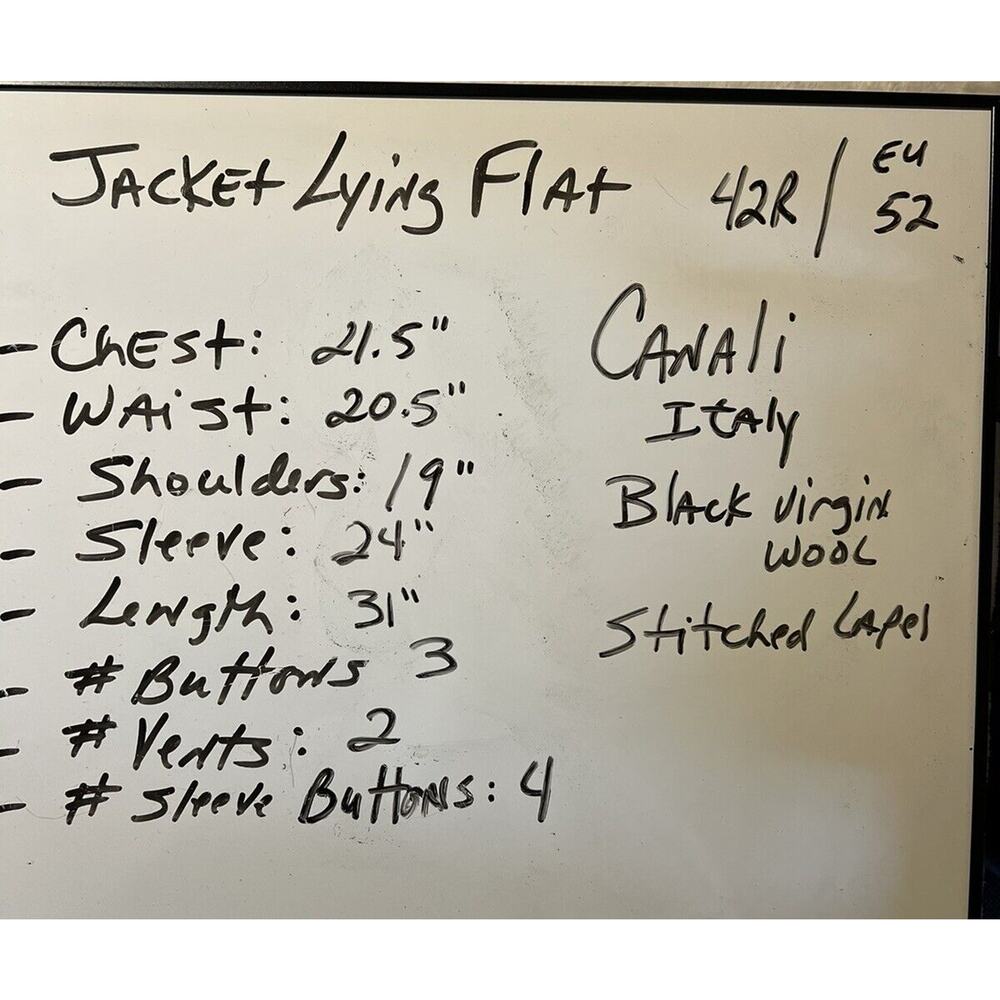 JACKEt Lying FlAt 42R / EU 52
- ChEst: 21.5"
- WAist: 20.5"
- Shoulders: 19"
- Sleeve: 24"
- Length: 31"
- # Buttons 3
- # Vents: 2
- # Sleeve Buttons: 4
CANAli
ItAly
BlAck virgin
WOOL
Stitched LApel